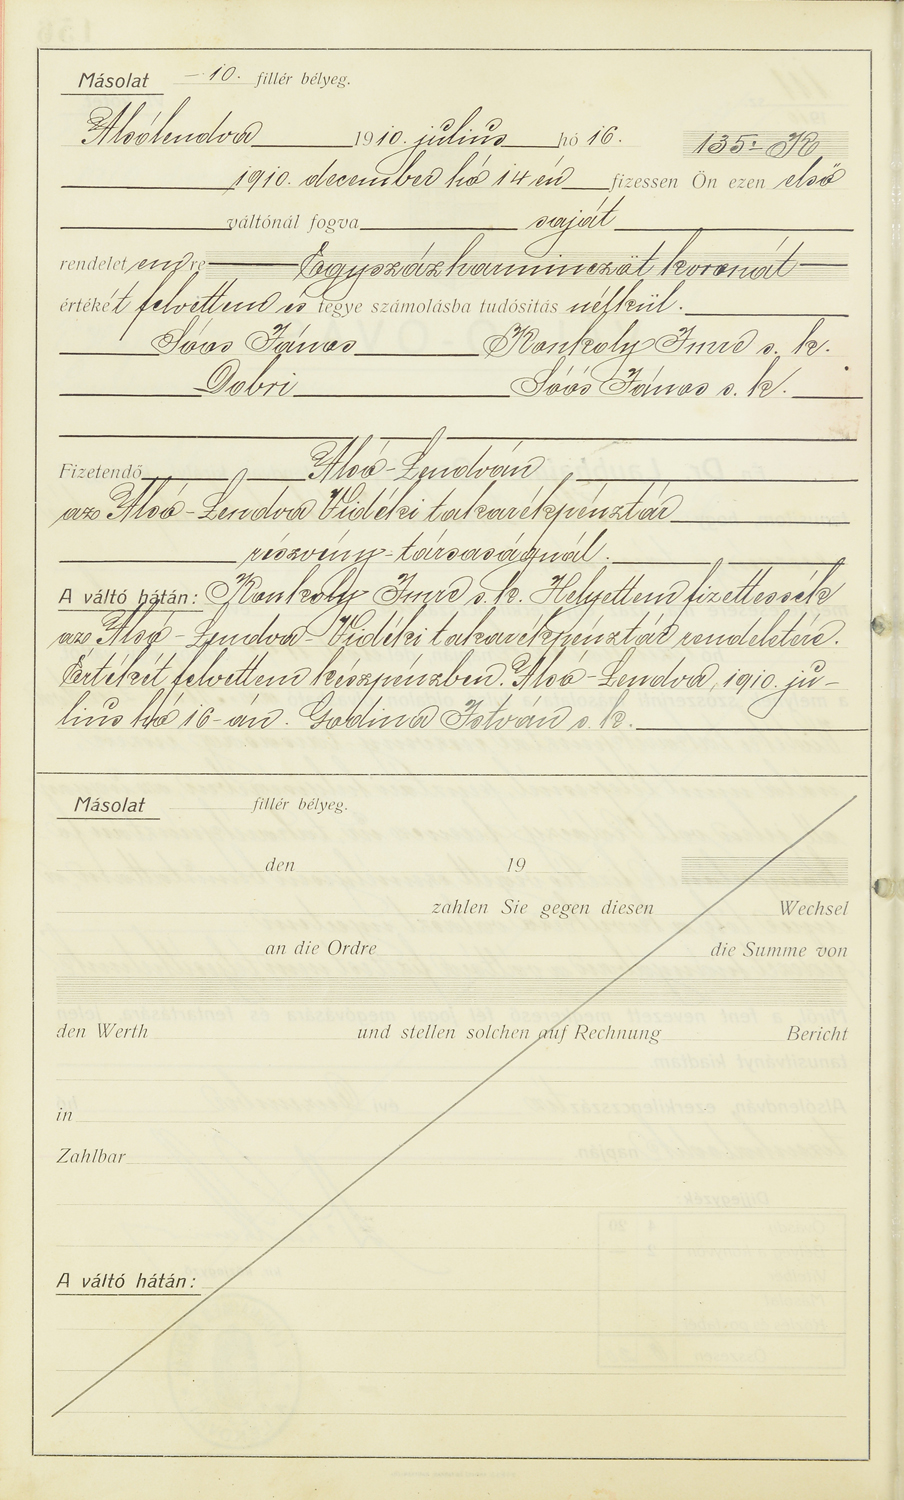 Másolat -10. fillér bélyeg.
Alsólendva 1910. július hó 16. 135.- K
1910. december hó 14 én fizessen Ön ezen első
váltónál fogva saját
rendeletemre Egyszázharminczöt koronát
értékét felvettem és tegye számolásba tudósítás nélkül.
Sóos János Konkoly Imre s. k.
Dobri Sóós János s. k.
Fizetendő Alsó-Lendván
az Alsó-Lendva Vidéki takarékpénztár
részvény-társaságnál.
A váltó hátán: Konkoly Imre s. k. Helyettem fizettessék
az Alsó-Lendva-Vidéki takarékpénztár rendeletére.
Értékét felvettem készpénzben. Alsó-Lendva, 1910. ju-
lius hó 16-án. Godina István s. k.
Másolat fillér bélyeg.
den 19
zahlen Sie gegen diesen Wechsel
an die Ordre die Summe von
den Werth und stellen solchen auf Rechnung Bericht
in
Zahlbar
A váltó hátán: